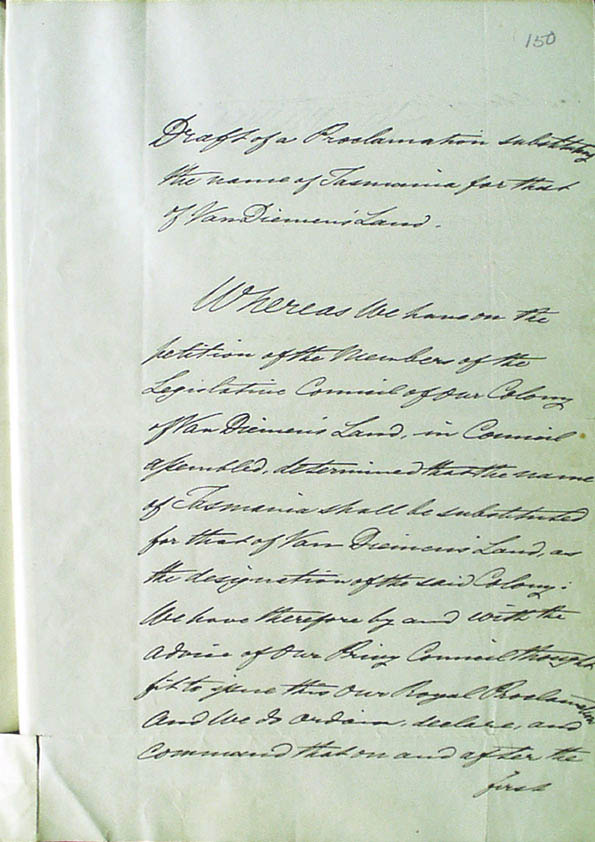 150
Draft of a Proclamation substituting
the name of Tasmania for that
of Van Diemen's Land.
Whereas We have on the
petition of the Members of the
Legislative Council of Our Colony
of Van Diemen's Land, in Council
assembled, determined that the name
of Tasmania shall be substituted
for that of Van Diemen's Land, as
the designation of the said Colony:
We have therefore by and with the
advice of Our Privy Council thought
fit to issue this Our Royal Proclamation
And We do ordain, declare, and
command that on and after the
first